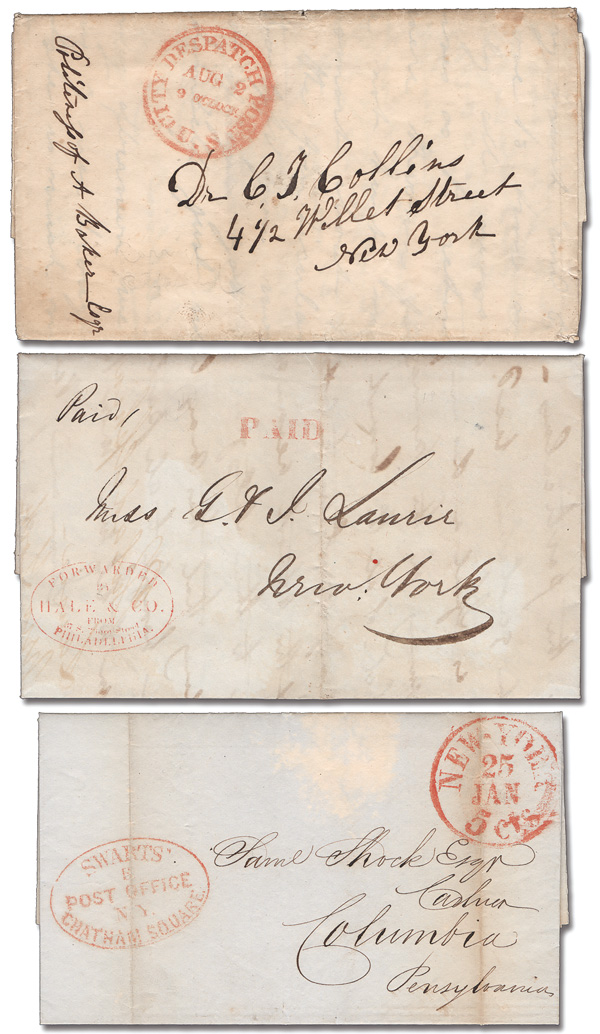 Politeness of A Baker Esqr
U.S. CITY DESPATCH POST
AUG 2
9 O'CLOCK
Dr C. J. Collins
4 1/2 Willet Street
New York
Paid,
PAID
Miss G. & J. Laurie
New York
FORWARDED
BY
HALE & CO.
FROM
PHILADELPHIA.
NEW-YORK
25
JAN
5 cts
SWARTS'
B
POST OFFICE
N.Y.
CHATHAM SQUARE.
Saml Shock Esqr
Cashier
Columbia
Pensylvania